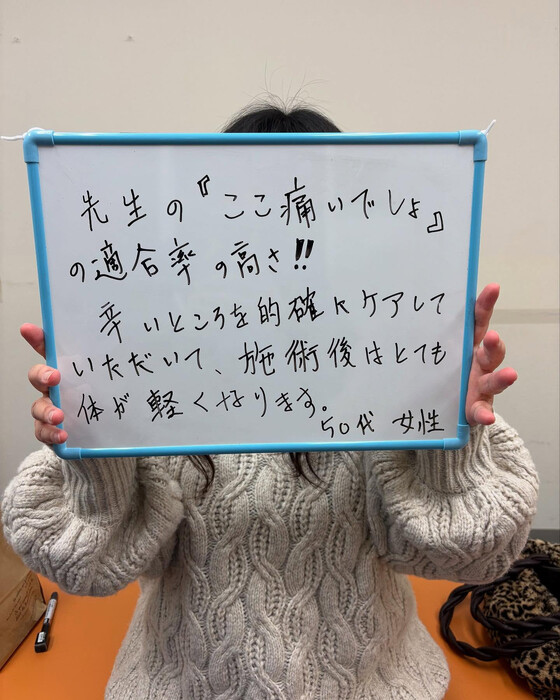 先生の『ここ痛いでしょ』
の適合率の高さ!!
辛いところを的確にケアして
いただいて、施術後はとても
体が軽くなります。
50代 女性